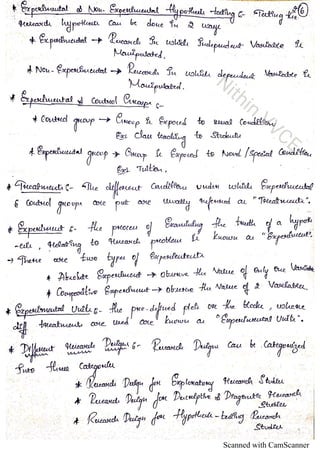 * Experimental & Non-Experimental Hypothesis-testing :- Testing the 6
research hypothesis can be done in 2 ways
* Experimental → Research in which Independent Variable is
Manipulated.
* Non-Experimental → Research in which dependent Variable is
Manipulated.
* Experimental & Control Groups :-
* Control group → Group is Exposed to usual Condition
Ex: Class teaching to Students
* Experimental group → Group is Exposed to Novel / Special Condition
Ex: Tuition.
* Treatments :- The different Condition under which Experimental
& Control groups are put are usually referred as "Treatments".
* Experiment :- the process of Examining the truth of a hypoth
-esis, relating to research problem is known as "Experiment".
→ There are two types of Experiments
* Absolute Experiment → observe the Value of only one Variable
* Comparative Experiment → observe the Value of 2 Variables
* Experimental Units :- the pre-defined plots or the blocks, where
diff treatments are used are known as "Experimental Units".
* Different Research Designs :- Research Design can be Categorized
into three Categories
* Research Design for Exploratory Research Studies
* Research Design for Descriptive & Diagnostic Research
Studies
* Research Design for Hypothesis-testing Research
Studies
Nithin, VVCE
Scanned with CamScanner